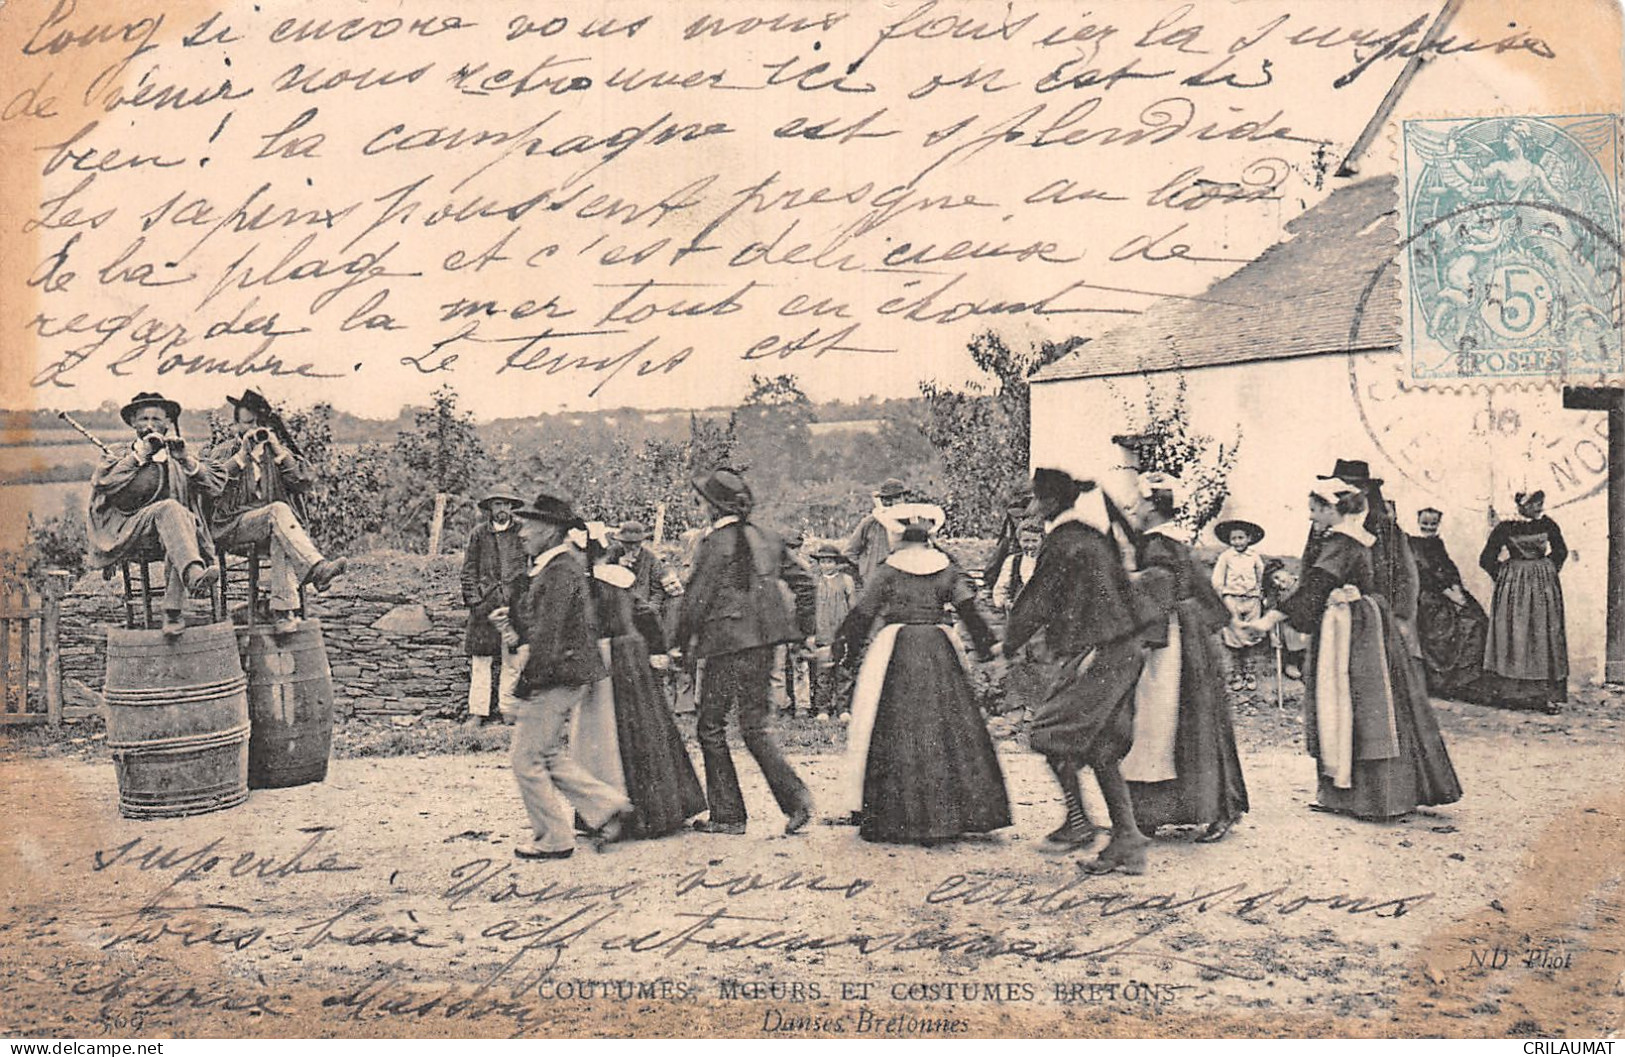 long si encore vous nous faisiez la surprise
de venir nous retrouver ici on est si
bien! la campagne est splendide
Les sapins poussent presque au bord
de la plage et c'est delicieuse de
regarder la mer tout en étant
à l'ombre. Le temps est
MATIGNON
5c
POSTES
superbe. Nous vous embrassons
tous bien affectueusement
ND Phot
COUTUMES, MŒURS ET COSTUMES BRETONS
Danses Bretonnes
CRILAUMAT